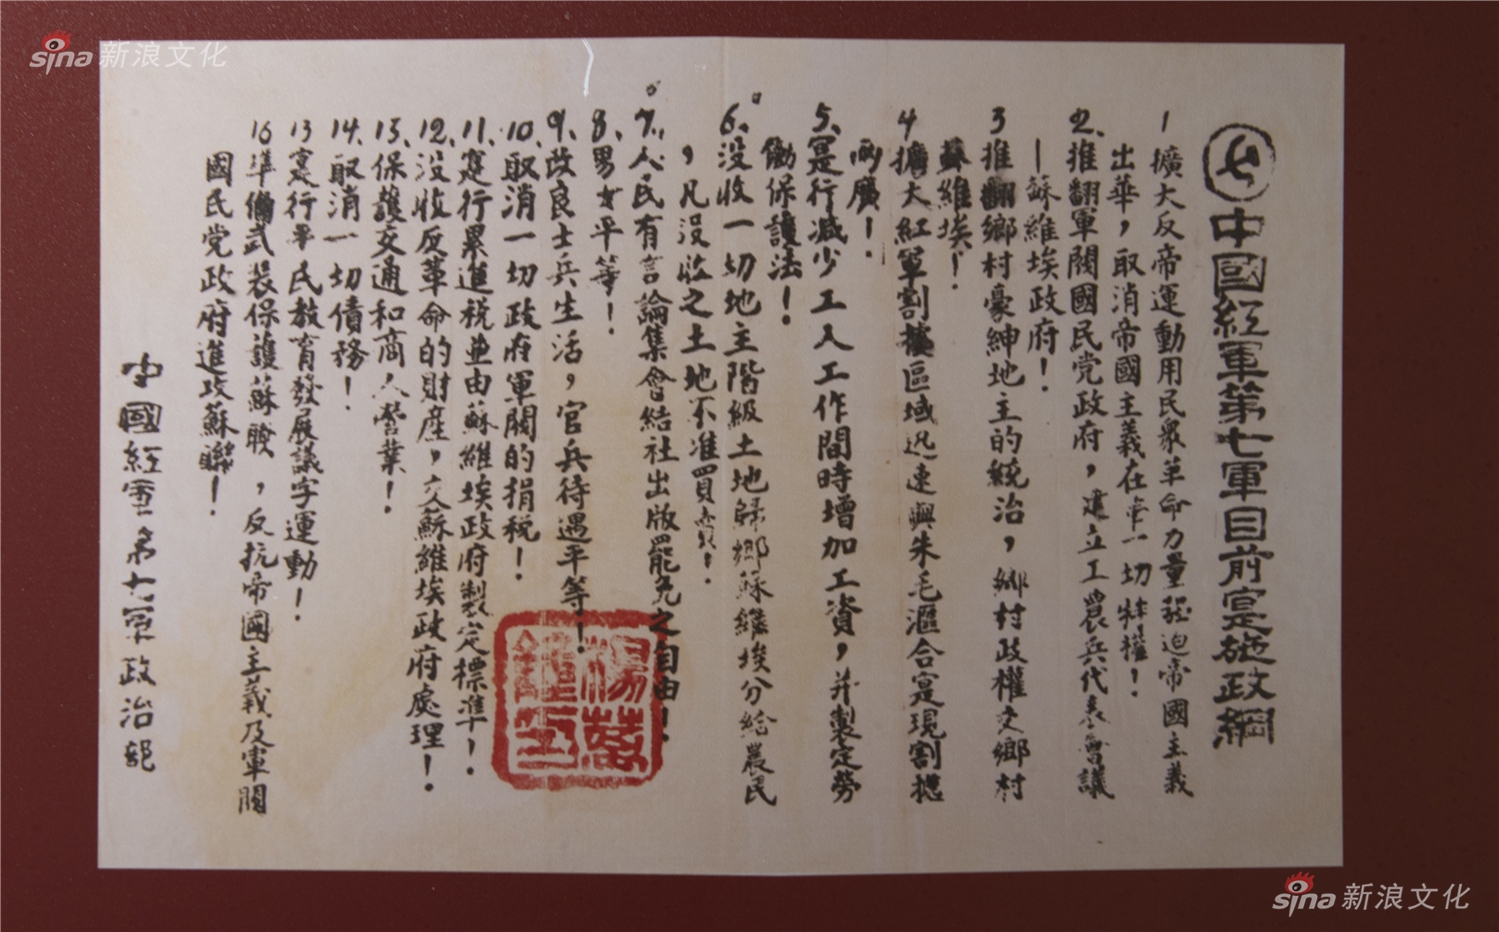 sina 新浪文化
七
中國紅軍第七軍目前寔施政綱
1 擴大反帝運動用民衆革命力量強迫帝國主義
出華，取消帝國主義在華一切特權！
2、推翻軍閥國民党政府，建立工農兵代表會議
—蘇維埃政府！
3 推翻鄉村豪紳地主的統治，鄉村政權交鄉村
蘇維埃！
4 擴大紅軍割據區域迅速與朱毛滙合寔現割據
兩廣！
5、寔行減少工人工作間時增加工資，并製定勞
働保護法！
6、没收一切地主階級土地歸鄉蘇維埃分給農民
，凡没收之土地不准買賣！
7、人民有言論集會結社出版罷免之自由！
8、男女平等！
9、改良士兵生活，官兵待遇平等！
10、取消一切政府軍閥的捐税！
11、寔行累進税並由蘇維埃政府製定標準！
12、没收反革命的財産，交蘇維埃政府處理！
13、保護交通和商人營業！
14、取消一切債務！
15寔行平民教育發展識字運動！
16準備武装保護蘇聯，反抗帝國主義及軍閥
國民党政府進攻蘇聯！
中國紅軍第七軍政治部
sina 新浪文化